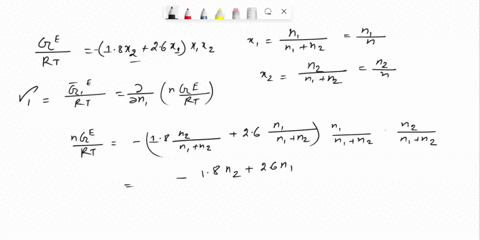 G^E/RT = -(1.8x₂ + 2.6x₁) x₁x₂
x₁ = n₁/(n₁+n₂) = n₁/n
x₂ = n₂/(n₁+n₂) = n₂/n
γ₁ = Ḡ₁^E/RT = ∂/∂n₁ (nG^E/RT)
nG^E/RT = -(1.8 n₂/(n₁+n₂) + 2.6 n₁/(n₁+n₂)) n₁/(n₁+n₂) · n₂/(n₁+n₂)
= - 1.8 n₂ + 2.6 n₁